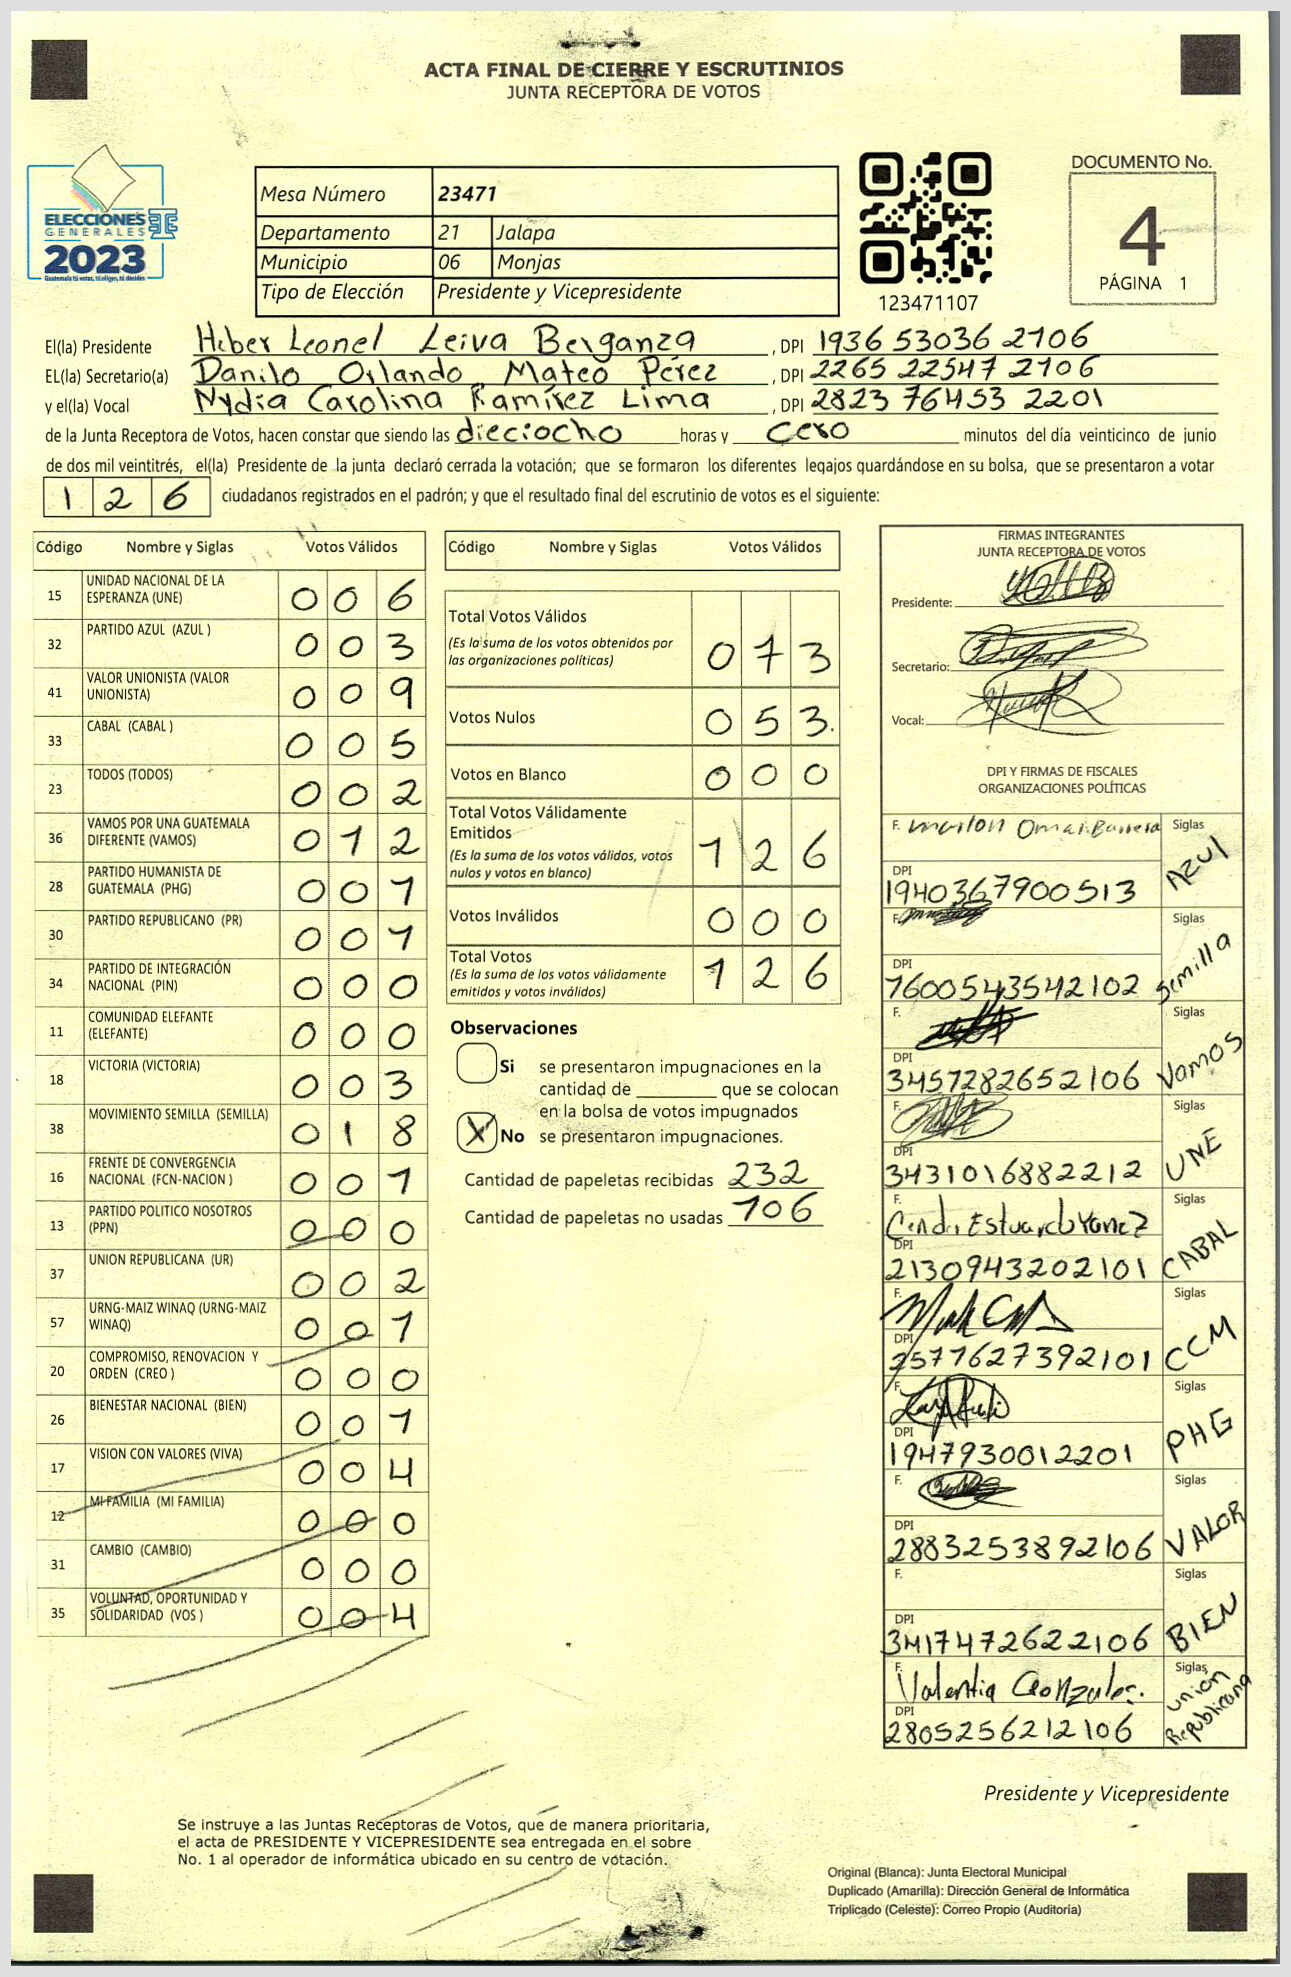 ACTA FINAL DE CIERRE Y ESCRUTINIOS
JUNTA RECEPTORA DE VOTOS
ELECCIONES
GENERALES
2023
Guatemala tú votas, tú eliges, tú decides
Mesa Número 23471
Departamento 21 Jalapa
Municipio 06 Monjas
Tipo de Elección Presidente y Vicepresidente
123471107
DOCUMENTO No.
4
PÁGINA 1
El(la) Presidente Heber Leonel Leiva Berganza, DPI 1936 53036 2106
EL(la) Secretario(a) Danilo Orlando Mateo Pérez, DPI 2265 22547 2106
y el(la) Vocal Nydia Carolina Ramírez Lima, DPI 2823 76453 2201
de la Junta Receptora de Votos, hacen constar que siendo las dieciocho horas y cero minutos del día veinticinco de junio
de dos mil veintitrés, el(la) Presidente de la junta declaró cerrada la votación; que se formaron los diferentes legajos guardándose en su bolsa, que se presentaron a votar
126 ciudadanos registrados en el padrón; y que el resultado final del escrutinio de votos es el siguiente:
Código Nombre y Siglas Votos Válidos
15 UNIDAD NACIONAL DE LA ESPERANZA (UNE) 006
32 PARTIDO AZUL (AZUL ) 003
41 VALOR UNIONISTA (VALOR UNIONISTA) 009
33 CABAL (CABAL ) 005
23 TODOS (TODOS) 002
36 VAMOS POR UNA GUATEMALA DIFERENTE (VAMOS) 012
28 PARTIDO HUMANISTA DE GUATEMALA (PHG) 001
30 PARTIDO REPUBLICANO (PR) 001
34 PARTIDO DE INTEGRACIÓN NACIONAL (PIN) 000
11 COMUNIDAD ELEFANTE (ELEFANTE) 000
18 VICTORIA (VICTORIA) 003
38 MOVIMIENTO SEMILLA (SEMILLA) 018
16 FRENTE DE CONVERGENCIA NACIONAL (FCN-NACION ) 001
13 PARTIDO POLITICO NOSOTROS (PPN) 000
37 UNION REPUBLICANA (UR) 002
57 URNG-MAIZ WINAQ (URNG-MAIZ WINAQ) 001
20 COMPROMISO, RENOVACION Y ORDEN (CREO ) 000
26 BIENESTAR NACIONAL (BIEN) 001
17 VISION CON VALORES (VIVA) 004
12 MI FAMILIA (MI FAMILIA) 000
31 CAMBIO (CAMBIO) 000
35 VOLUNTAD, OPORTUNIDAD Y SOLIDARIDAD (VOS ) 004
Código Nombre y Siglas Votos Válidos
Total Votos Válidos
(Es la suma de los votos obtenidos por las organizaciones políticas) 073
Votos Nulos 053
Votos en Blanco 000
Total Votos Válidamente Emitidos
(Es la suma de los votos válidos, votos nulos y votos en blanco) 126
Votos Inválidos 000
Total Votos
(Es la suma de los votos válidamente emitidos y votos inválidos) 126
Observaciones
Si se presentaron impugnaciones en la
cantidad de ________ que se colocan
en la bolsa de votos impugnados
X No se presentaron impugnaciones.
Cantidad de papeletas recibidas 232
Cantidad de papeletas no usadas 106
FIRMAS INTEGRANTES
JUNTA RECEPTORA DE VOTOS
Presidente:
Secretario:
Vocal:
DPI Y FIRMAS DE FISCALES
ORGANIZACIONES POLÍTICAS
F. Marlon Omar Barrera Siglas AZUl
DPI 1940367900513
F. Siglas Semilla
DPI 7600543542102
F. Siglas Vamos
DPI 3457282652106
F. Siglas UNE
DPI 3431016882212
F. Estuardo Siglas CABAL
DPI 2130943202101
F. Siglas CCM
DPI 2577627392101
F. Siglas PHG
DPI 1947930012201
F. Siglas VALOR
DPI 2883253892106
F. Siglas BIEN
DPI 3417472622106
F. Valentia Gonzalez. Siglas Unión Republicana
DPI 2805256212106
Presidente y Vicepresidente
Se instruye a las Juntas Receptoras de Votos, que de manera prioritaria,
el acta de PRESIDENTE Y VICEPRESIDENTE sea entregada en el sobre
No. 1 al operador de informática ubicado en su centro de votación.
Original (Blanca): Junta Electoral Municipal
Duplicado (Amarilla): Dirección General de Informática
Triplicado (Celeste): Correo Propio (Auditoría)